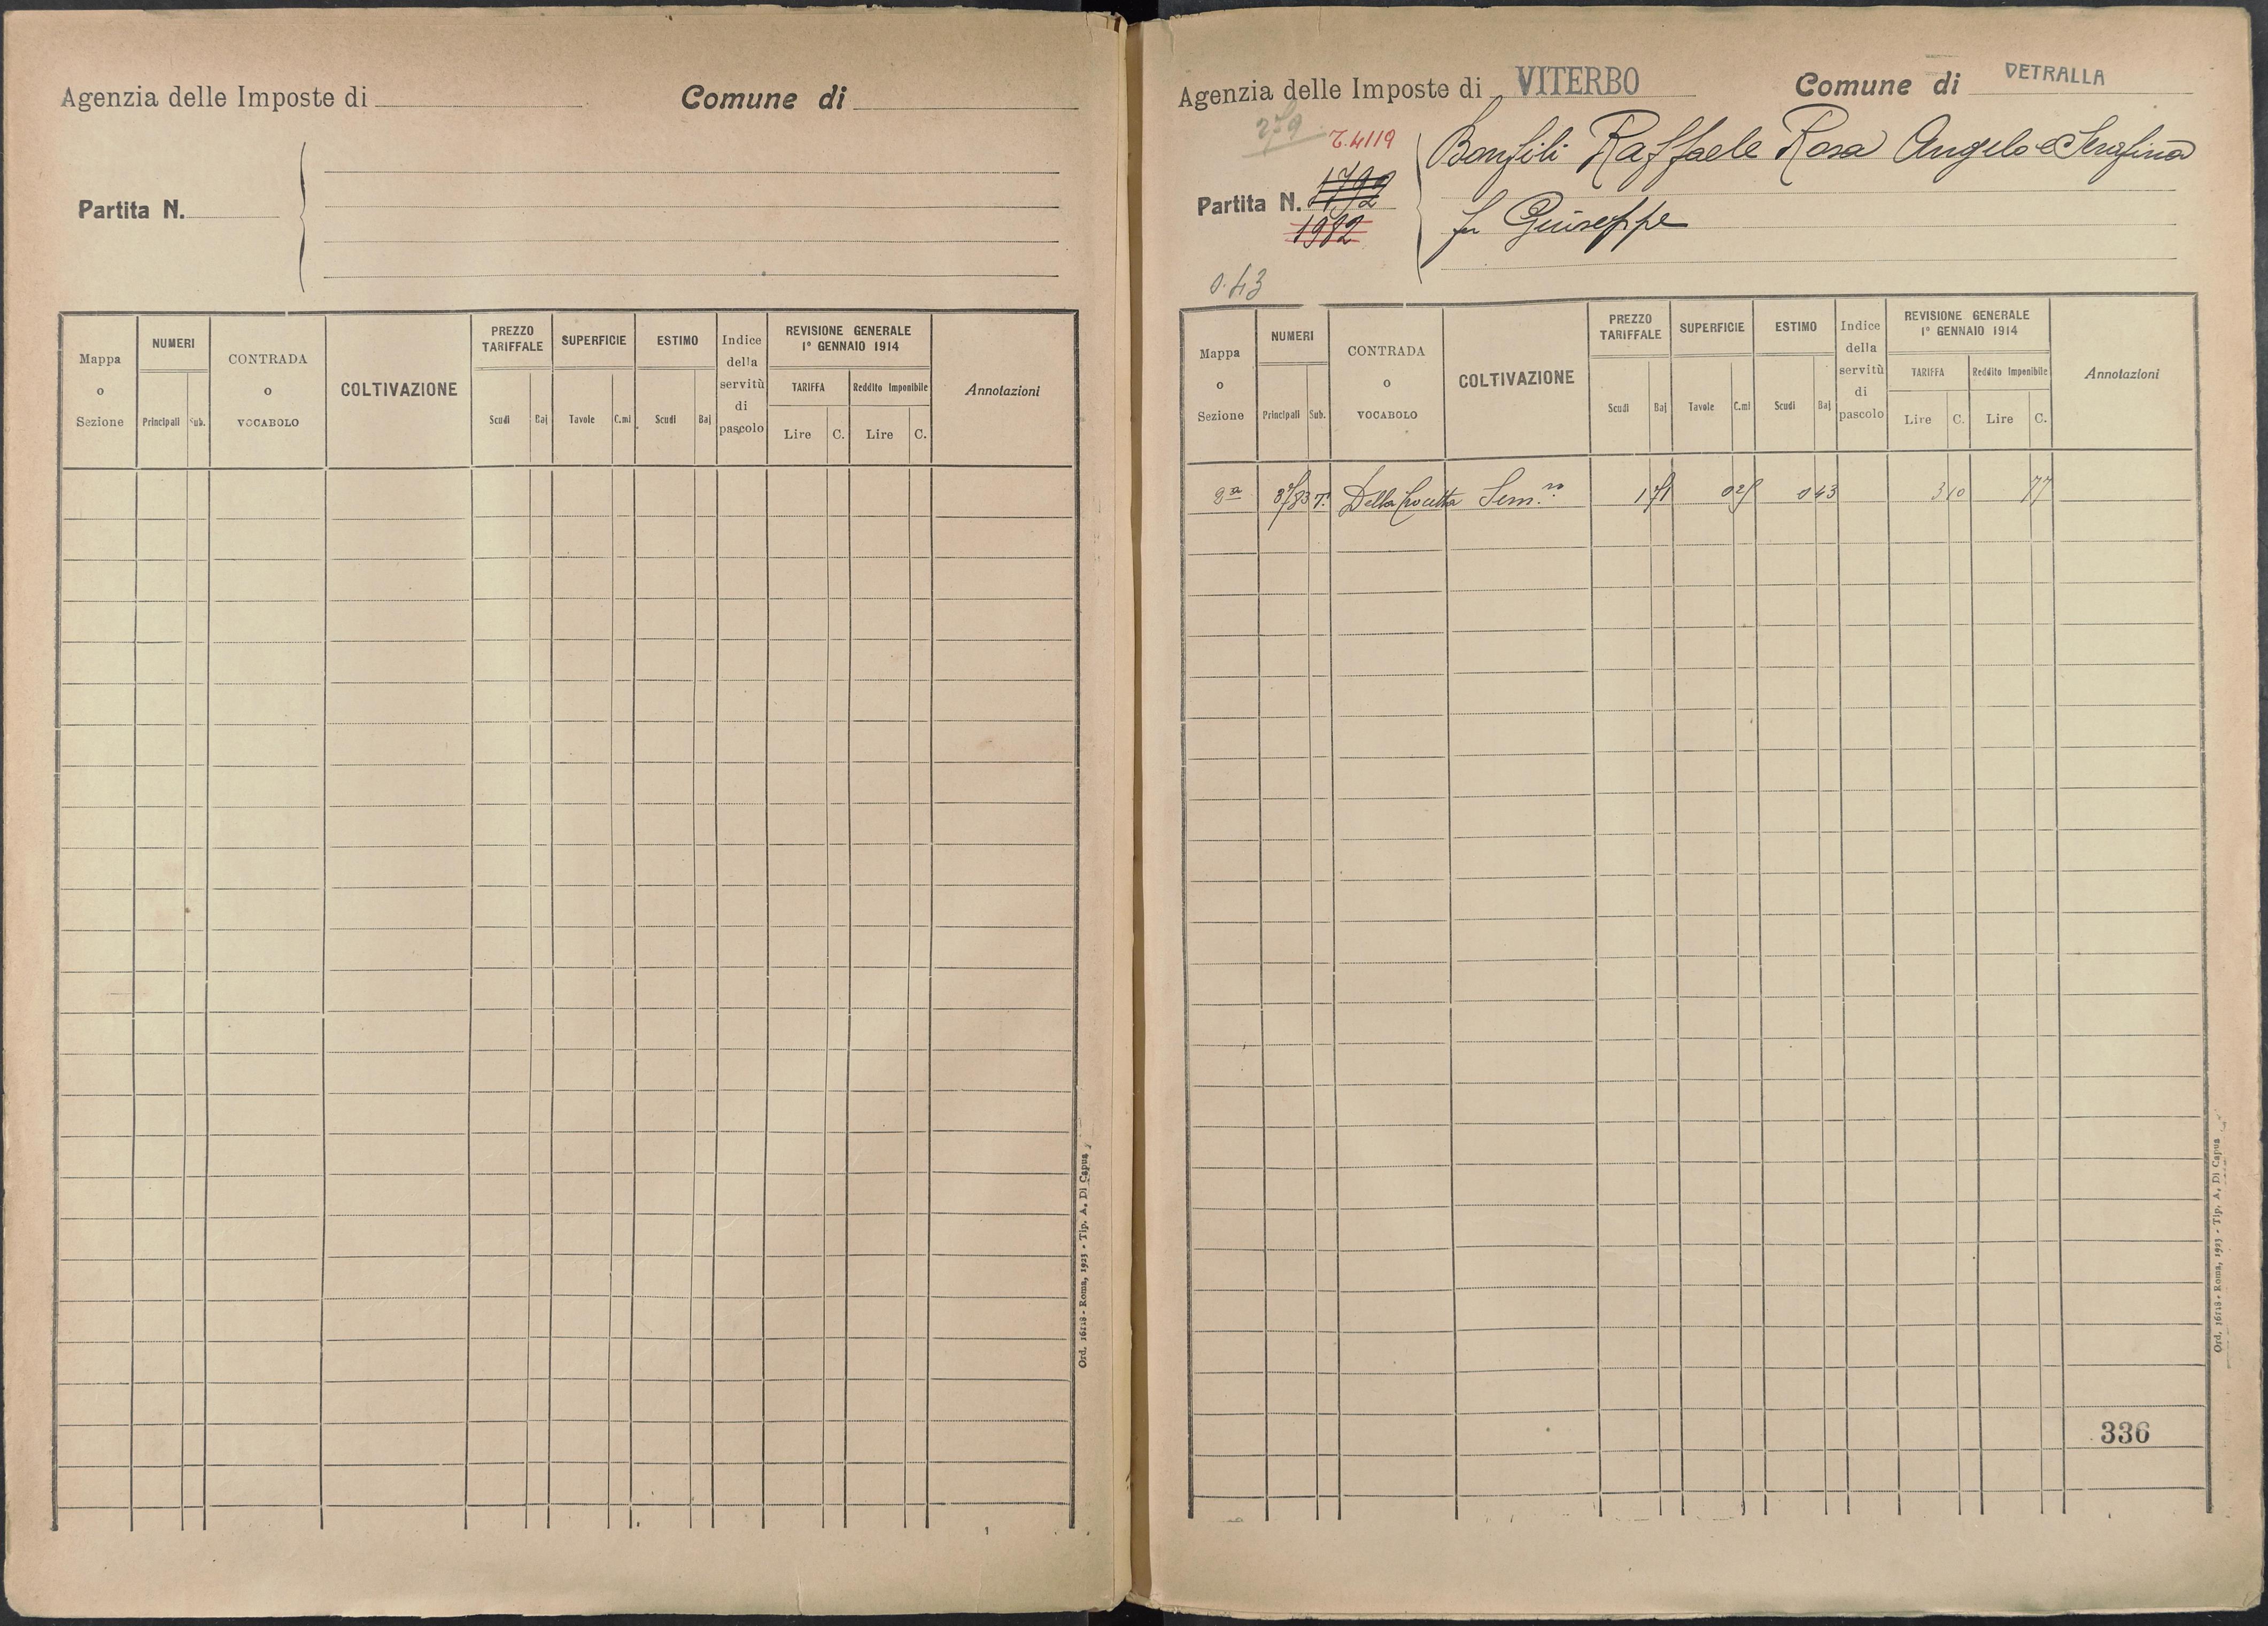 Agenzia delle Imposte di
Comune di
Partita N.
Mappa o Sezione
NUMERI
Principali
Sub.
CONTRADA o VOCABOLO
COLTIVAZIONE
PREZZO TARIFFALE
Scudi
Baj
SUPERFICIE
Tavole
C.mi
ESTIMO
Scudi
Baj
Indice della servitù di pascolo
REVISIONE GENERALE
1º GENNAIO 1914
TARIFFA
Lire
C.
Reddito Imponibile
Lire
C.
Annotazioni
Ord. 16118 - Roma, 1923 - Tip. A. Di Capua
Agenzia delle Imposte di VITERBO
Comune di VETRALLA
T. 4119
Partita N. 1792
1982
Bonfili Raffaele Rosa Angelo e Serafina
fu Giuseppe
0.43
Mappa o Sezione
NUMERI
Principali
Sub.
CONTRADA o VOCABOLO
COLTIVAZIONE
PREZZO TARIFFALE
Scudi
Baj
SUPERFICIE
Tavole
C.mi
ESTIMO
Scudi
Baj
Indice della servitù di pascolo
REVISIONE GENERALE
1º GENNAIO 1914
TARIFFA
Lire
C.
Reddito Imponibile
Lire
C.
Annotazioni
Della Sem.vo 0 43 3 10 77
336
Ord. 16118 - Roma, 1923 - Tip. A. Di Capua